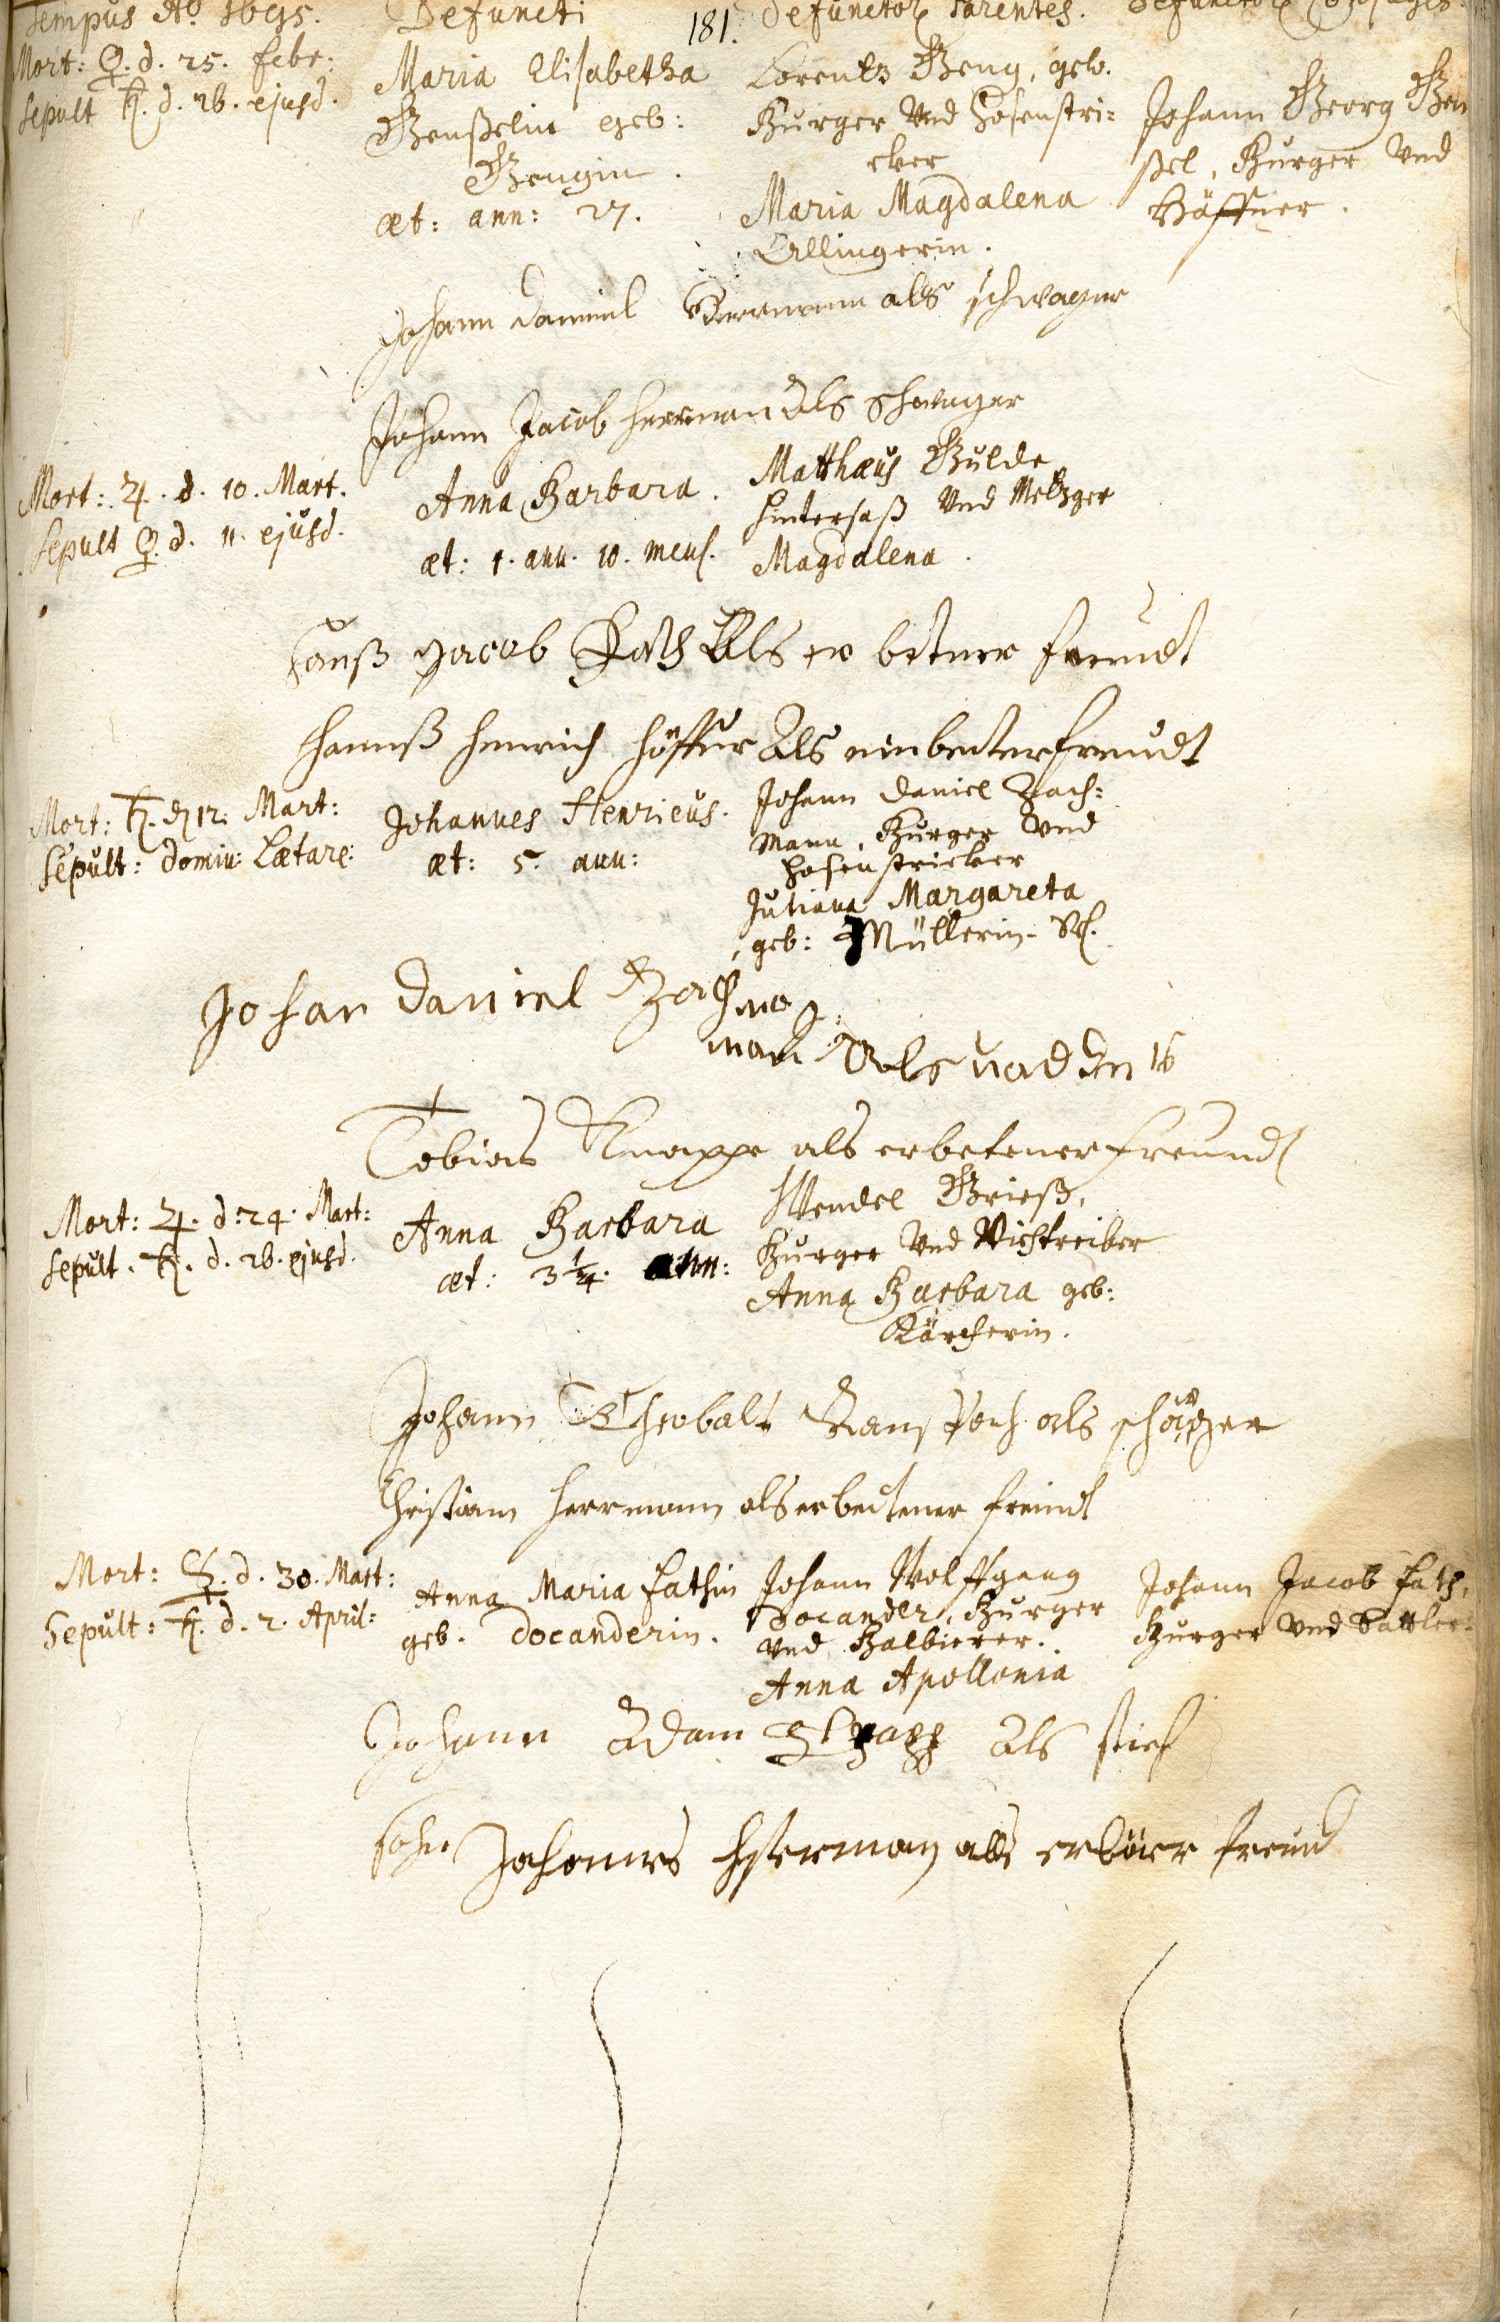 Tempus Aō 1695.
Defuncti
181.
Defunctor Parentes.
Defunctor Conjuges.
Mort: ♀. d. 25. febr:
Sepult ♄. d. 26. ejusd.
Maria Elisabetha
Genßelin geb:
Gengin.
æt: ann: 27.
Lorentz Geng, gew.
Burger Vnd Hosenstri-
cker
Maria Magdalena
Ollingerin.
Johann Georg Gen
ßel, Burger Vnd
Häffner.
Johann Daniel Herrmann als schwager
Johann Jacob Herrman Als Schwager
Mort: ♃. d. 10. Mart.
Sepult ♀. d. 11. ejusd.
Anna Barbara.
æt: 1. ann. 10. mens.
Matthæus Gulde
Hintersaß Vnd Metzger
Magdalena.
Hanß Jacob Als er betner freindt
Hannß Henrich Höffner Als einbetter freudt
Mort: ♄. d 12. Mart:
Sepult: domin: Lætare:
Johannes Henricus.
æt: 5. ann:
Johann Daniel Bach-
mann, Burger Vnd
Hosenstricker
Juliana Margareta
geb: Müllerin-
Johan Daniel Bachma
man Als vadter
Tobias Knappe als erbetener freundt
Mort: ♃. d. 24. Mart:
Sepult. ♄. d. 26. ejusd.
Anna Barbara
æt: 3 1/4. ann:
Wendel Grieß,
Burger Vnd Viehtreiber
Anna Barbara geb:
Kärcherin.
Johann Theobalt als schwager
Christian Herrmann als erbettener freindt
Mort: d. 30. Mart:
Sepult: ♄. d. 2. April:
Anna Maria Fathin
geb. Docanderin.
Johann Wolffgang
Docander, Burger
Vnd Balbierer.
Anna Apollonia
Johann Jacob Fath,
Burger Vnd Sattler.
Johann Adam Als stief
sohn Johannes als freund